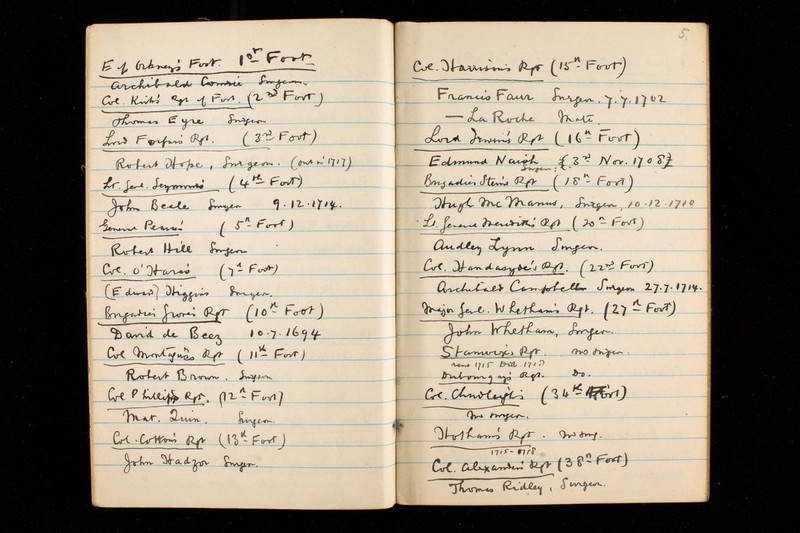 E of Orkney's Foot. 1st Foot
Archibald Comrie Surgeon.
Col. Kirk's Rgt of Foot. (2nd Foot)
Thomas Eyre Surgeon
Lord Forfar's Rgt. (3rd Foot)
Robert Hope, Surgeon. (out in 1717)
Lt. Genl. Seymour's (4th Foot)
John Beale Surgeon 9.12.1714.
General Pearce's (5th Foot)
Robert Hill Surgeon
Col. O'Hara's (7th Foot)
(Edward) Higgins Surgeon.
Brigadier Grove's Rgt (10th Foot)
David de Beez 10.7.1694
Col Montague's Rgt (11th Foot)
Robert Brown. Surgeon
Col Phillips Rgt. (12th Foot)
Mat. Quin. Surgeon
Col. Cotton's Rgt (13th Foot)
John Hadzor Surgeon.
5.
Col. Harrison's Rgt (15th Foot)
Francis Faur Surgeon. 7.7.1702
— La Roche Mate.
Lord Irwin's Rgt (16th Foot)
Edmund Naish Surgeon. {3rd Nov. 1708}
Brigadier Stern's Rgt (18th Foot)
Hugh McManus, Surgeon, 10.12.1710
Lt. General Meredith's Rgt (20th Foot)
Audley Lynn Surgeon.
Col. Handasyde's Rgt. (22nd Foot)
Archibald Campbell Surgeon 27.7.1714.
Major Genl. Whetham's Rgt. (27th Foot)
John Whetham, Surgeon
Stanwix's Rgt. no surgeon.
1715 1718
Dubourgay's Rgt. Do.
Col. Chudleigh's (34th Foot)
no surgeon.
Hotham's Rgt. no surg.
1715-1718
Col. Alexander's Rgt (38th Foot)
Thomas Ridley, Surgeon.